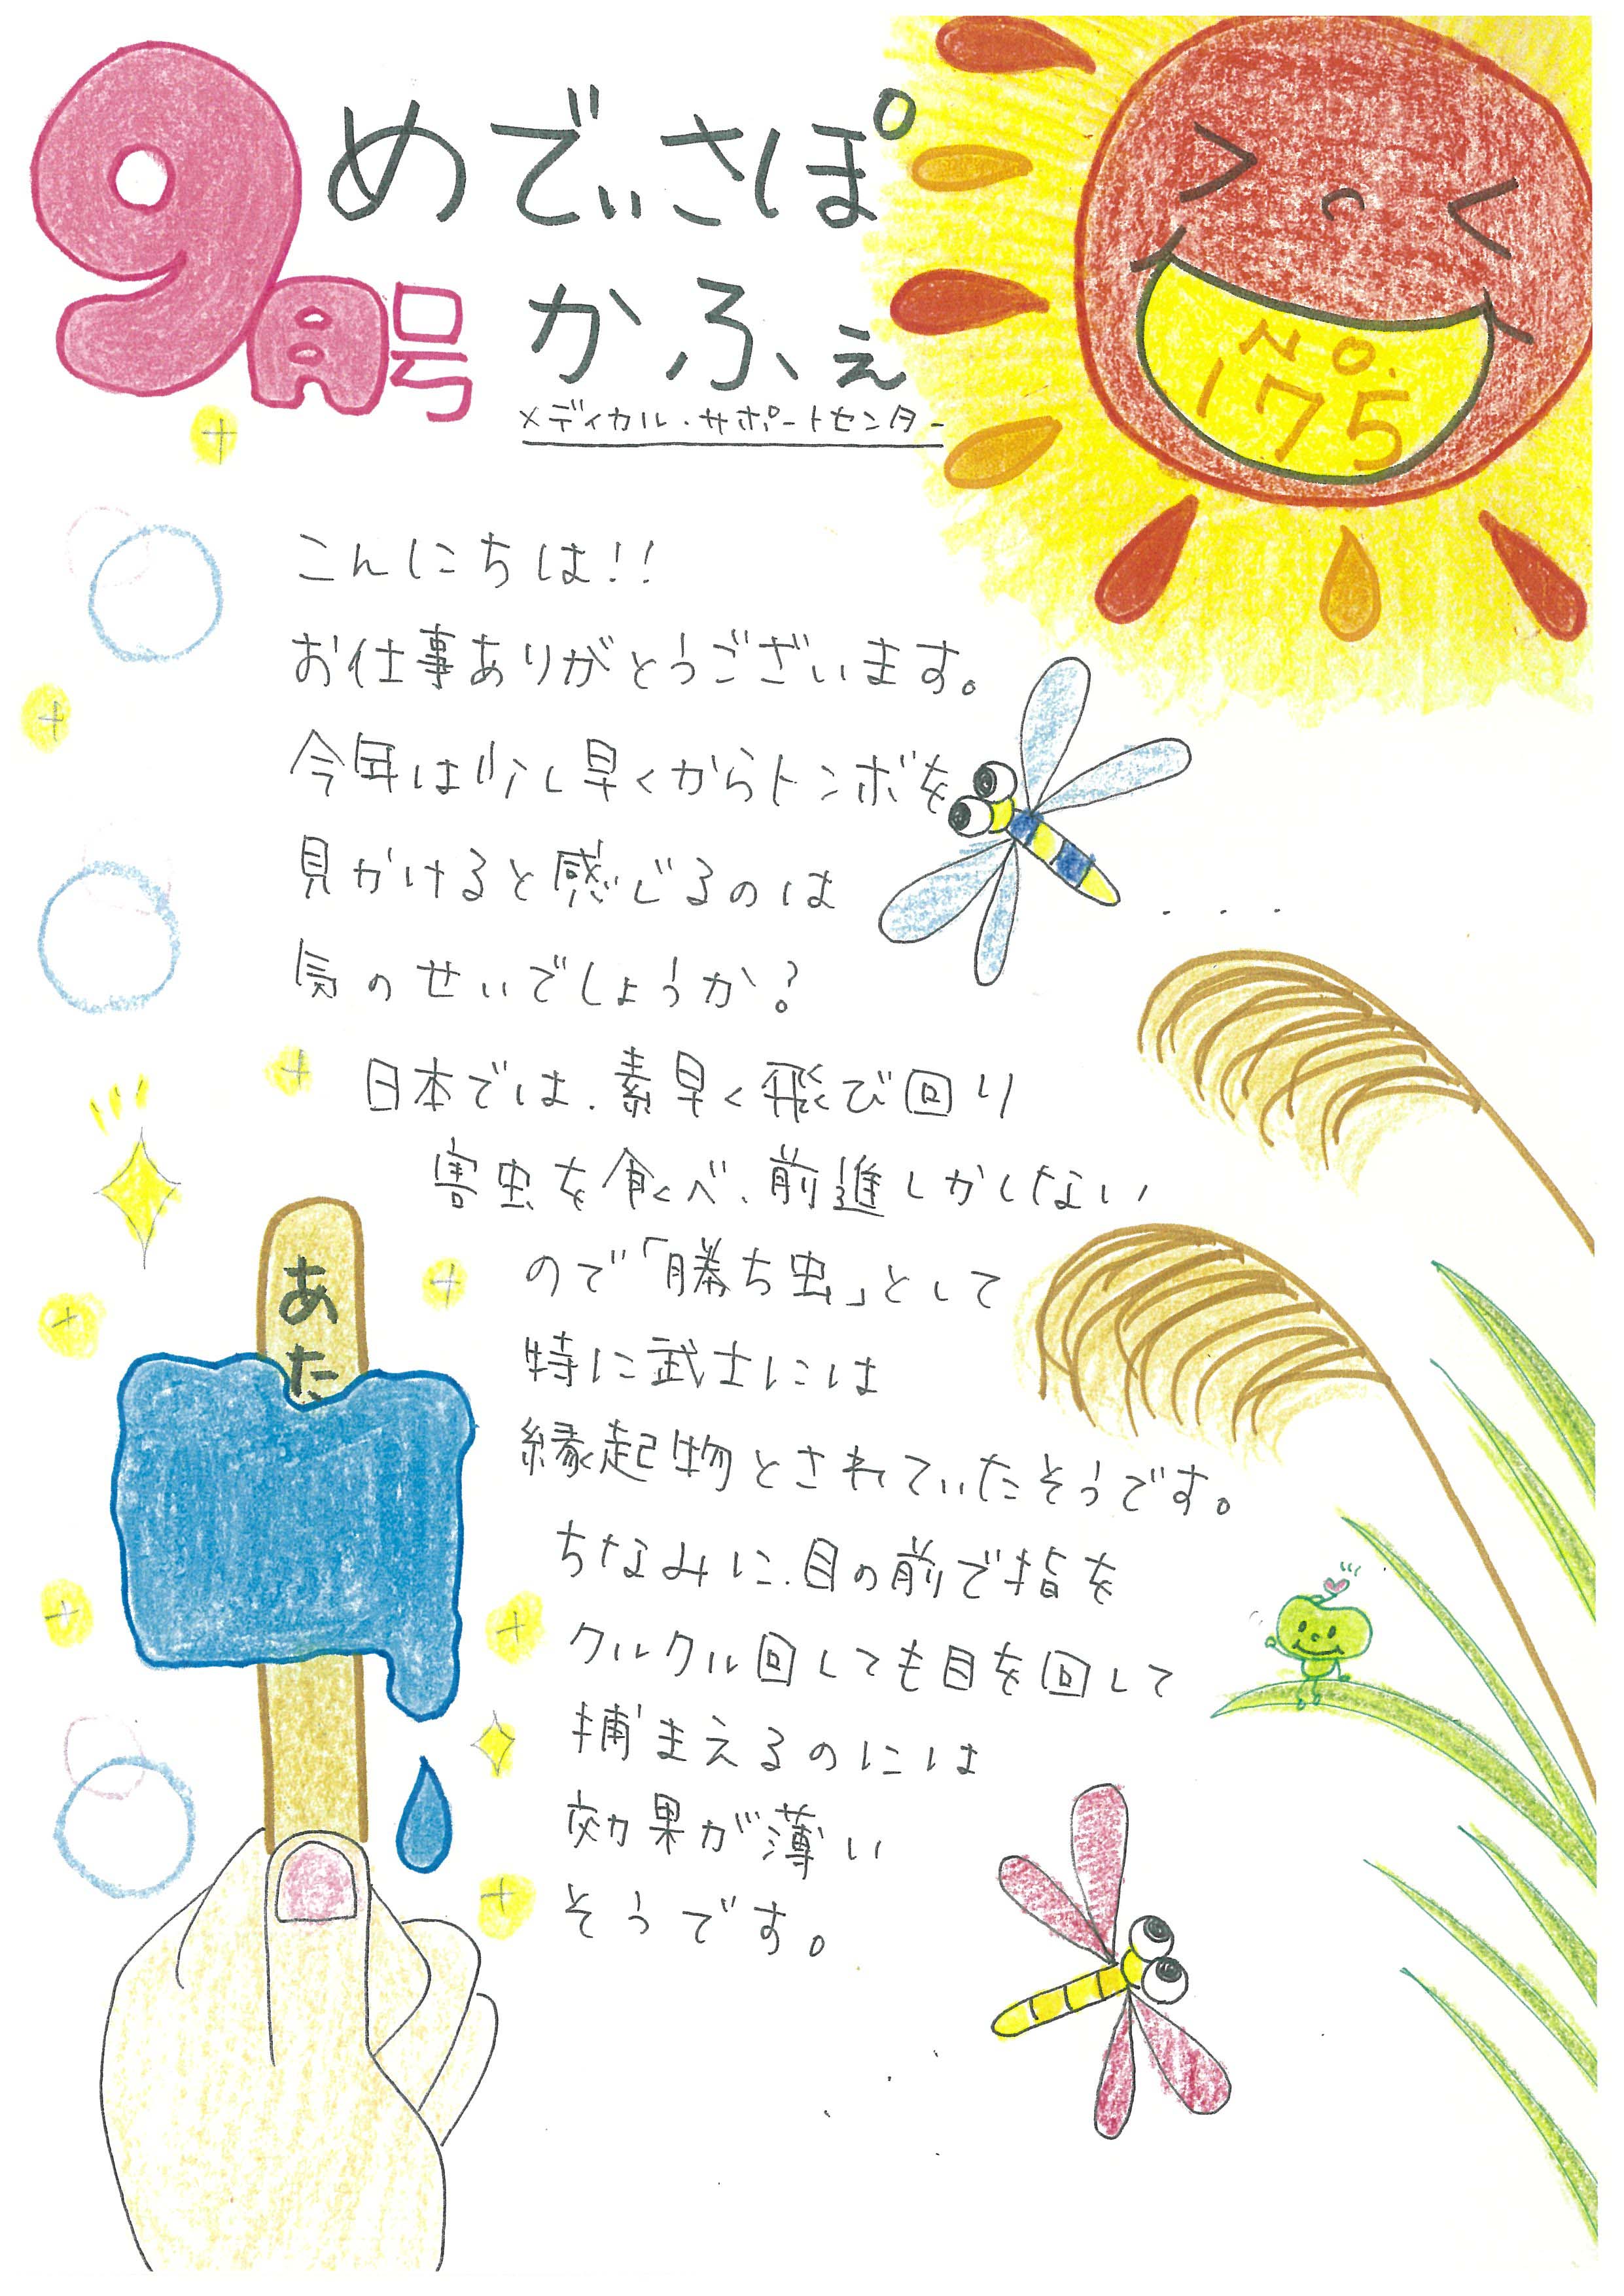 9月号
めでぃさぽ
かふぇ
メディカル・サポートセンター
No.
175
こんにちは!!
お仕事ありがとうございます。
今年は少し早くからトンボを
見かけると感じるのは
気のせいでしょうか?
日本では、素早く飛び回り
害虫を食べ、前進しかしない
ので「勝ち虫」として
特に武士には
縁起物とされていたそうです。
ちなみに、目の前で指を
クルクル回しても目を回して
捕まえるのには
効果が薄い
そうです。
あた